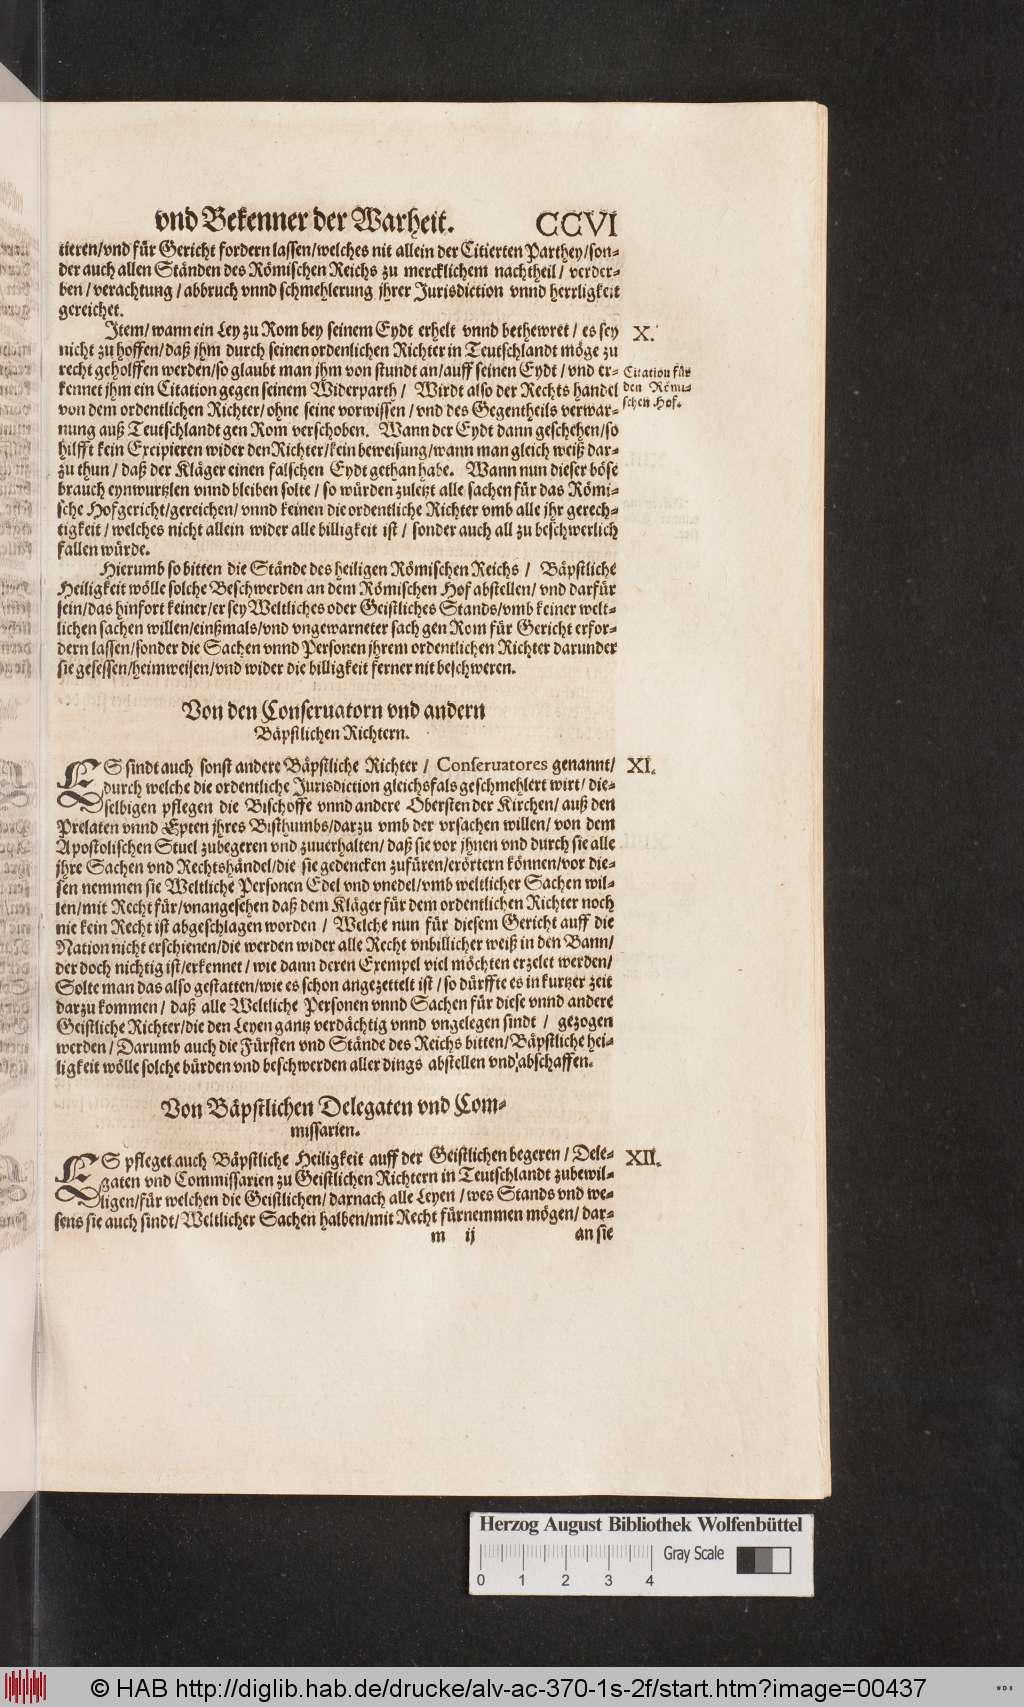 vnd Bekenner der Warheit. CCVI
tieren/vnd für Gericht fordern lassen/welches nit allein der Citierten Parthey/son-
der auch allen Ständen des Römischen Reichs zu mercklichem nachtheil/ verder-
ben/verachtung/abbruch vnnd schmehlerung jhrer Jurisdiction vnnd herrligkeit
gereichet.
Item/wann ein Ley zu Rom bey seinem Eydt erhelt vnnd bethewret/ es sey
X.
nicht zu hoffen/daß jhm durch seinen ordenlichen Richter in Teutschlandt möge zu
recht geholffen werden/so glaubt man jhm von stundt an/auff seinen Eydt/vnd er-
Citation für
kennet jhm ein Citation gegen seinem Widerparth/ Wirdt also der Rechts handel
den Römi-
von dem ordentlichen Richter/ohne seine vorwissen/vnd des Gegentheils verwar-
schen Hof.
nung auß Teutschlandt gen Rom verschoben. Wann der Eydt dann geschehen/so
hilfft kein Excipieren wider den Richter/kein beweisung/wann man gleich weiß dar-
zu thun/daß der Kläger einen falschen Eydt gethan habe. Wann nun dieser böse
brauch eynwurtzlen vnnd bleiben solte/so würden zuletzt alle sachen für das Römi-
sche Hofgericht/gereichen/vnnd keinen die ordentliche Richter vmb alle jhr gerech-
tigkeit/welches nicht allein wider alle billigkeit ist/ sonder auch all zu beschwerlich
fallen würde.
Hierumb so bitten die Stände des heiligen Römischen Reichs/ Bäpstliche
Heiligkeit wölle solche Beschwerden an dem Römischen Hof abstellen/vnd darfür
sein/das hinfort keiner/er sey Weltliches oder Geistliches Stands/vmb keiner welt-
lichen sachen willen/einßmals/vnd vngewarneter sach gen Rom für Gericht erfor-
dern lassen/sonder die Sachen vnnd Personen jhrem ordentlichen Richter darunder
sie gesessen/heimweisen/vnd wider die billigkeit ferner nit beschweren.
Von den Conseruatorn vnd andern
Bäpstlichen Richtern.
ES sindt auch sonst andere Bäpstliche Richter/ Conseruatores genannt/
XI.
durch welche die ordentliche Jurisdiction gleichsfals geschmehlert wirt/die-
selbigen pflegen die Bischoffe vnnd andere Obersten der Kirchen/auß den
Prelaten vnnd Epten jhres Bisthumbs/darzu vmb der vrsachen willen/von dem
Apostolischen Stuel zubegeren vnd zuuerhalten/daß sie vor jhnen vnd durch sie alle
jhre Sachen vnd Rechtshändel/die sie gedencken zufüren/erörtern können/vor die-
sen nemmen sie Weltliche Personen Edel vnd vnedel/vmb weltlicher Sachen wil-
len/mit Recht für/vnangesehen daß dem Kläger für dem ordentlichen Richter noch
nie kein Recht ist abgeschlagen worden/ Welche nun für diesem Gericht auff die
Nation nicht erschienen/die werden wider alle Recht vnbillicher weiß in den Bann/
der doch nichtig ist/erkennet/wie dann deren Exempel viel möchten erzelet werden/
Solte man das also gestatten/wie es schon angezettelt ist/so dürffte es in kurtzer zeit
darzu kommen/ daß alle Weltliche Personen vnnd Sachen für diese vnnd andere
Geistliche Richter/die den Leyen gantz verdächtig vnnd vngelegen sindt/ gezogen
werden/Darumb auch die Fürsten vnd Stände des Reichs bitten/Bäpstliche hei-
ligkeit wölle solche bürden vnd beschwerden aller dings abstellen vnd abschaffen.
Von Bäpstlichen Delegaten vnd Com-
missarien.
ES pfleget auch Bäpstliche Heiligkeit auff der Geistlichen begeren/Dele-
XII.
gaten vnd Commissarien zu Geistlichen Richtern in Teutschlandt zubewil-
ligen/für welchen die Geistlichen/darnach alle Leyen/wes Stands vnd we-
sens sie auch sindt/Weltlicher Sachen halben/mit Recht fürnemmen mögen/dar-
m ij an sie
Herzog August Bibliothek Wolfenbüttel
Gray Scale
0 1 2 3 4
© HAB http://diglib.hab.de/drucke/alv-ac-370-1s-2f/start.htm?image=00437